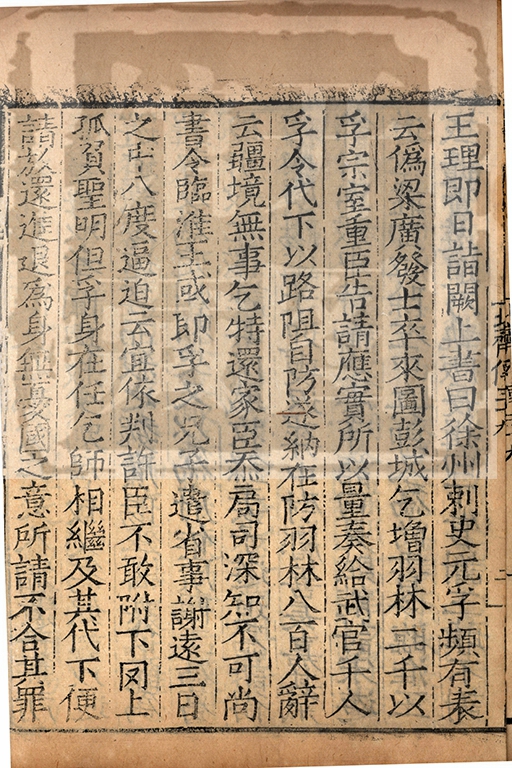 王理即日詣闕上書曰徐州刺史元孚頻有表
云偽梁廣發士卒來圖彭城乞增羽林二千以
孚宗室重臣告請應實所以量奏給武官千人
孚令代下以路阻自防遂納在防羽林八百人辭
云疆境無事乞特還家臣忝局司深知不可尚
書令臨淮王或即孚之兄子遣省事謝遠三日
之中八度逼迫云宜依判許臣不敢附下罔上
孤負聖明但孚身在任乞師相繼及其代下便
請放還進退為身無憂國之意所請不合其罪